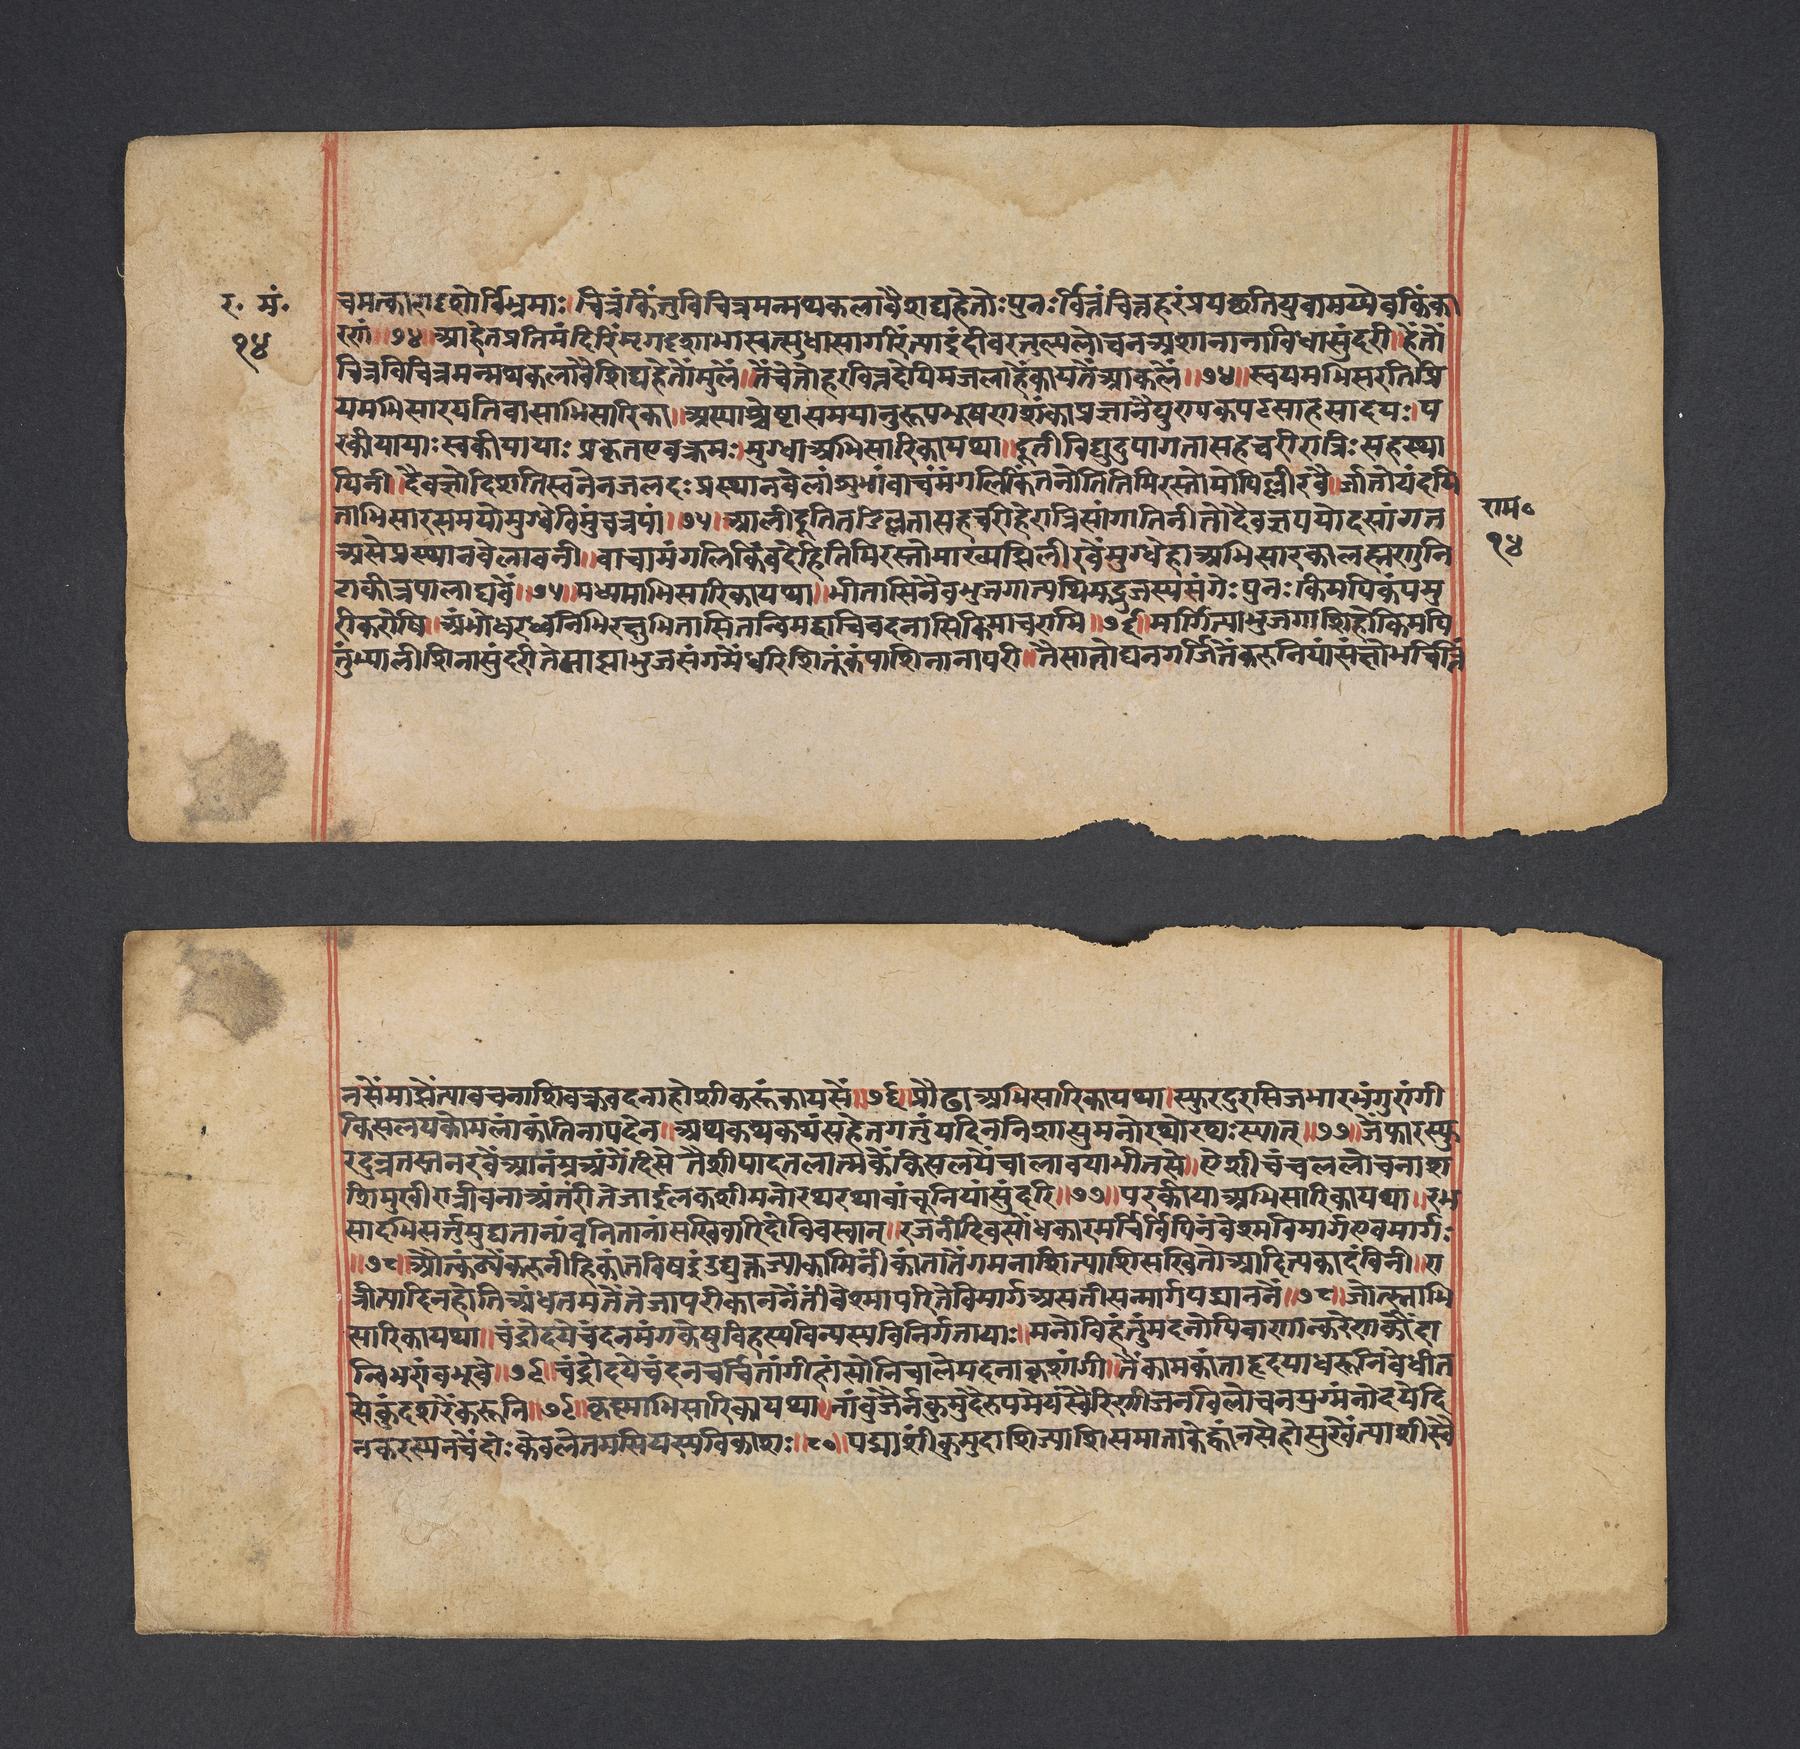 र. मं.
१४
चमत्कारादृशोर्विभ्रमाः चित्रं किंतु विचित्रमन्मथकलावैशद्यहेतोः पुनः वित्तं चित्तहरं प्रयच्छति युवामय्येव किं का
रणं ॥ ७४ ॥ आहेत प्रतिमंदिरिं मृगदृशाभास्वत्सुधासागीरिं त्याइंदीवरतुल्यलोचन अशा नानाविधासुंदरी ॥ हेतों
चित्रविचित्रमन्मथकलावैशिद्यहेतोंमुलें ॥ तें चेतोहरवित्त देयिमजला हें कायतें आकलें ॥ ७४ ॥ स्वयमभिसरति प्रि
यमभिसारयति वा साभिसारिका ॥ अस्याश्चेष्टा समयानुरूपभूषणशंकाप्रज्ञानैपुण्यकपटसाहसादयः प
रकीयायाः स्वकीयायाः प्रकृत एव क्रमः मुग्धा अभिसारिका यथा ॥ दूती विद्युदुपागता सहचरी रात्रिः सहस्था
यिनी दैवज्ञो दिशति स्वनेन जलदः प्रस्थानवेलां शुभां वाचं मंगलिकिं तनोति तिमिरस्तोमोपि झिल्लीरवै र्जातोयं दयि
ताभिसारसमयो मुग्धे विमुंच त्रपां ॥ ७५ ॥ आली दूति तडिल्लता सहचरी हे रात्रि सांगातिनी तो दैवज्ञ पयोद सांगत
असे प्रस्थानवेला वनी ॥ वाचा मंगलिकिं वदे हि तिमिरस्तोमाख्य झिलीरवें मुग्धे हा अभिसारकाल ह्मणुनि
टाकी त्रपा लाघवें ॥ ७५ ॥ मध्यमाभिसारिका यथा ॥ भीतासि नैव भुजगात्पथि मद्भुजस्य संगेः पुनः किमपि कंपमु
रीकरोषि अंभोधरध्वनिभिरक्षुभितासि तन्वि मद्वाचि वदनासि किमाचरामि ॥ ७६ ॥ मार्गि त्या भुजगाशि हो किमपि
तुं भ्याली शि ना सुंदरी ते माझा भुजसंगमें धरिशि तूं कंपाशि नानापरी ॥ तैसा तो घनगर्जितें करुनियां संक्षोभ चिंतिं
राम॰
१४
नसें माझें त्या वचनाशि वक्रवदना होशी करूं काय सें ॥ ७६ ॥ प्रौढा अभिसारिका यथा स्फुरदुरसिजभारभंगुरांगी
किसलयकोमलां कांतिना पदेन ॥ अथ कथ कथं सहेत गंतुं यदि न निशासु मनोरथो रथः स्यात् ॥ ७७ ॥ जे फार स्फु
रदुन्नतस्तनरवें आनंम्र अंगें दिसे तैशी पादतलात्मकें किसलयें चालावया भीतसे ॥ ऐशी चंचललोचना श
शिमुखी रात्री वना अंतंरी ते जाईल कशी मनोरथरथावांचूनियां सुंदरि ॥ ७७ ॥ परकीया अभिसारिका यथा ॥ रभ
सादभिसर्तुमुद्यतानां वनितानां सखि वारिदो विवस्वान् ॥ रजनी दिवसोंधकारमर्चिर्विपिनं वेश्म विमार्ग एव मार्गः
॥ ७८ ॥ औत्कंठ्यें करुनी हि कांतविषइं उद्युक्त ज्या कामिनी कांतातें गमनाशि त्याशि सखि तो आदित्य कादंबिनी ॥ रा
त्री त्या दिन होति अंधतमतें तेजापरी काननें तीं वेश्मापरि ते विमार्ग असती सन्मार्ग पद्मानने ॥ ७८ ॥ जोत्स्नाभि
सारिका यथा ॥ चंद्रोदये चंदनमंगकेषु विहस्य विन्यस्य विनिर्गतायाः ॥ मनो विहंतुं मदनोपि बाणान्करेण कौंदा
न्बिभरांबभूवे ॥ ७९ ॥ चंद्रोदये चंदनचर्चितांगी हांसोनि चाले मदना कृशांगी ॥ तैं काम कांताहृदया धरूनि वेधीत
से कुंदशरें करूनि ॥ ७९ ॥ कृष्णाभिसारिका यथा ॥ नांबुजैर्न कुमुदैरुपमेयं स्वैरिणीजनविलोचनयुग्मं नोदये दि
नकरस्य न चेंदोः केवले तमसि यस्य विकाशः ॥ ८० ॥ पद्माशीं कुमुदाशि ज्याशि समाता केव्हां नसे हो सुखें त्याशी स्वै